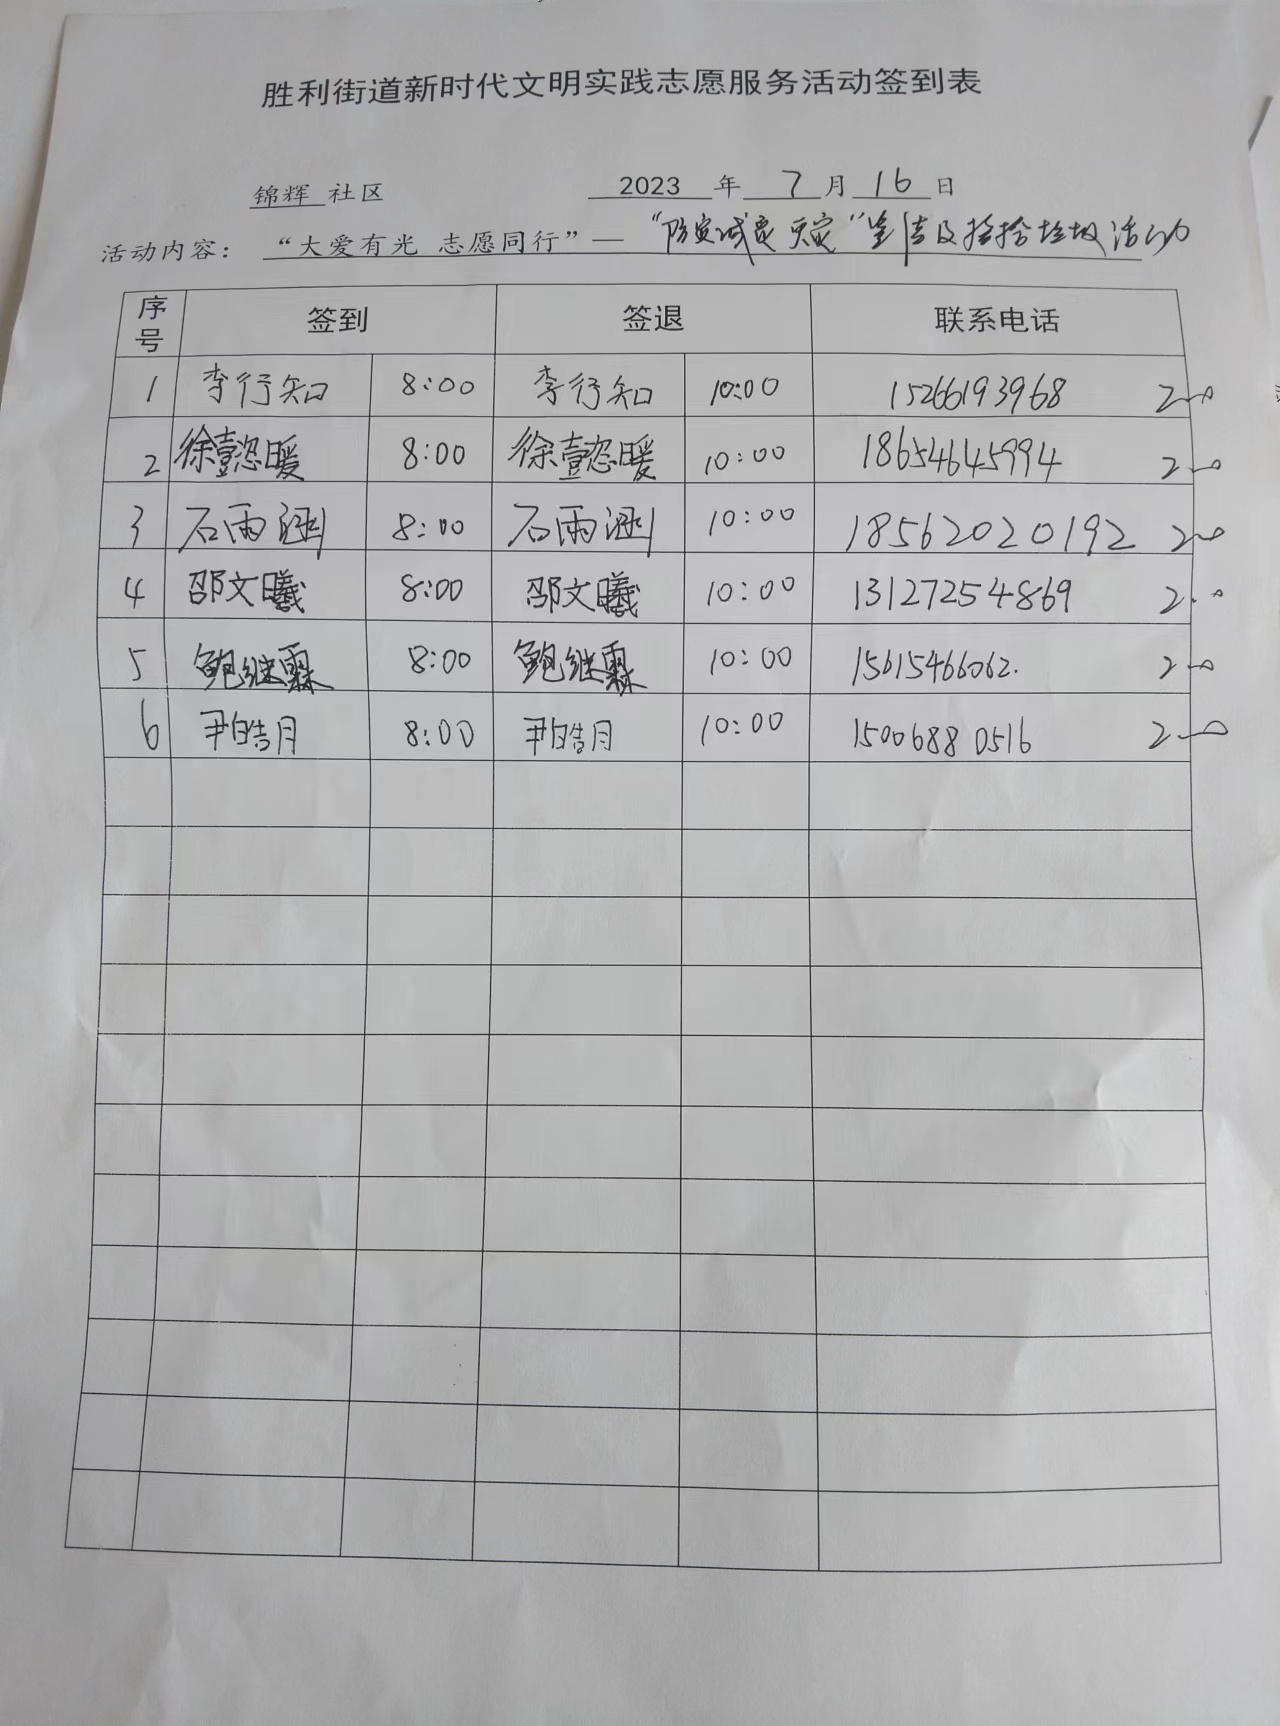 胜利街道新时代文明实践志愿服务活动签到表
锦辉 社区 2023 年 7 月 16 日
活动内容： “大爱有光 志愿同行”— “防灾减灾 宣传及捡拾垃圾活动
序号 签到 签退 联系电话
1 李行知 8:00 李行知 10:00 15266193968 2
2 徐懿暖 8:00 徐懿暖 10:00 18654645994 2
3 石雨涵 8:00 石雨涵 10:00 18562020192 2
4 邵文曦 8:00 邵文曦 10:00 13127254869 2
5 鲍继霖 8:00 鲍继霖 10:00 15615466062. 2
6 尹皓月 8:00 尹皓月 10:00 15006880516 2